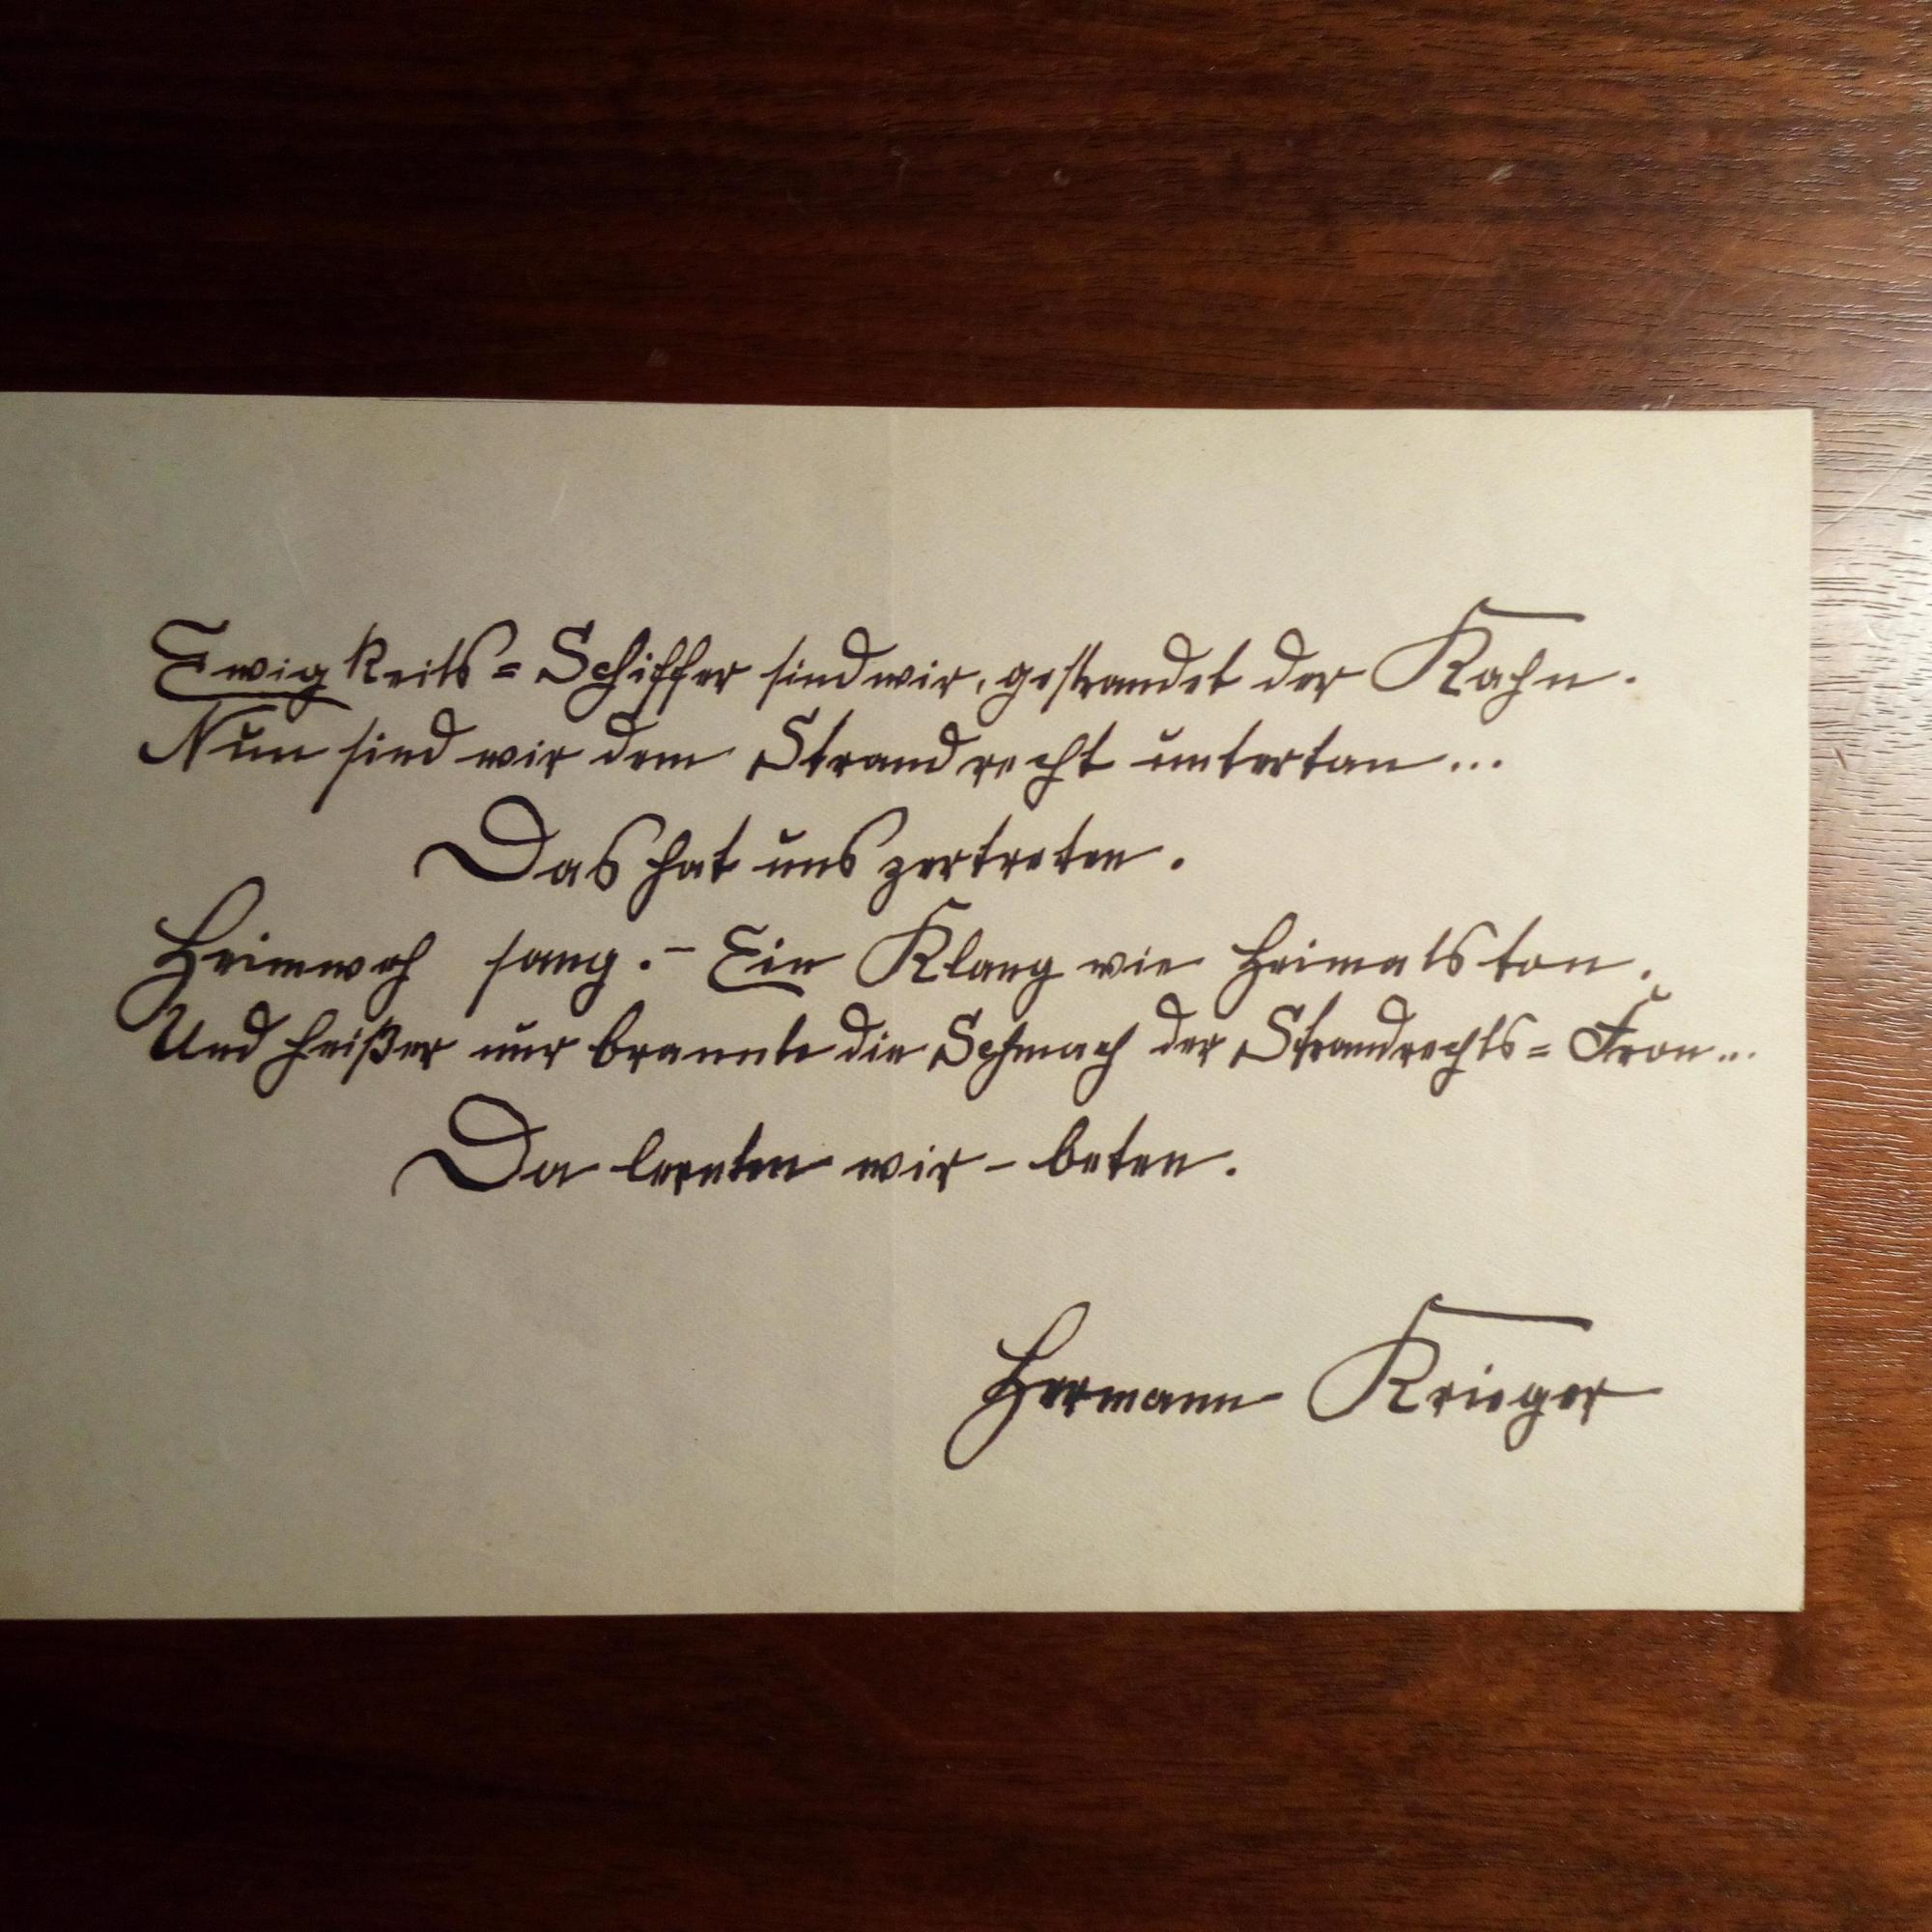 Ewigkeits=Schiffer sind wir, gestrandet der Kahn.
Nun sind wir dem Strandrecht untertan...
Das hat uns zertreten.
Heimweh sang.– Ein Klang wie Heimatston.
Und heißer nur brannte die Schmach der Strandrechts=Fron...
Da lernten wir – beten.
Hermann Krieger